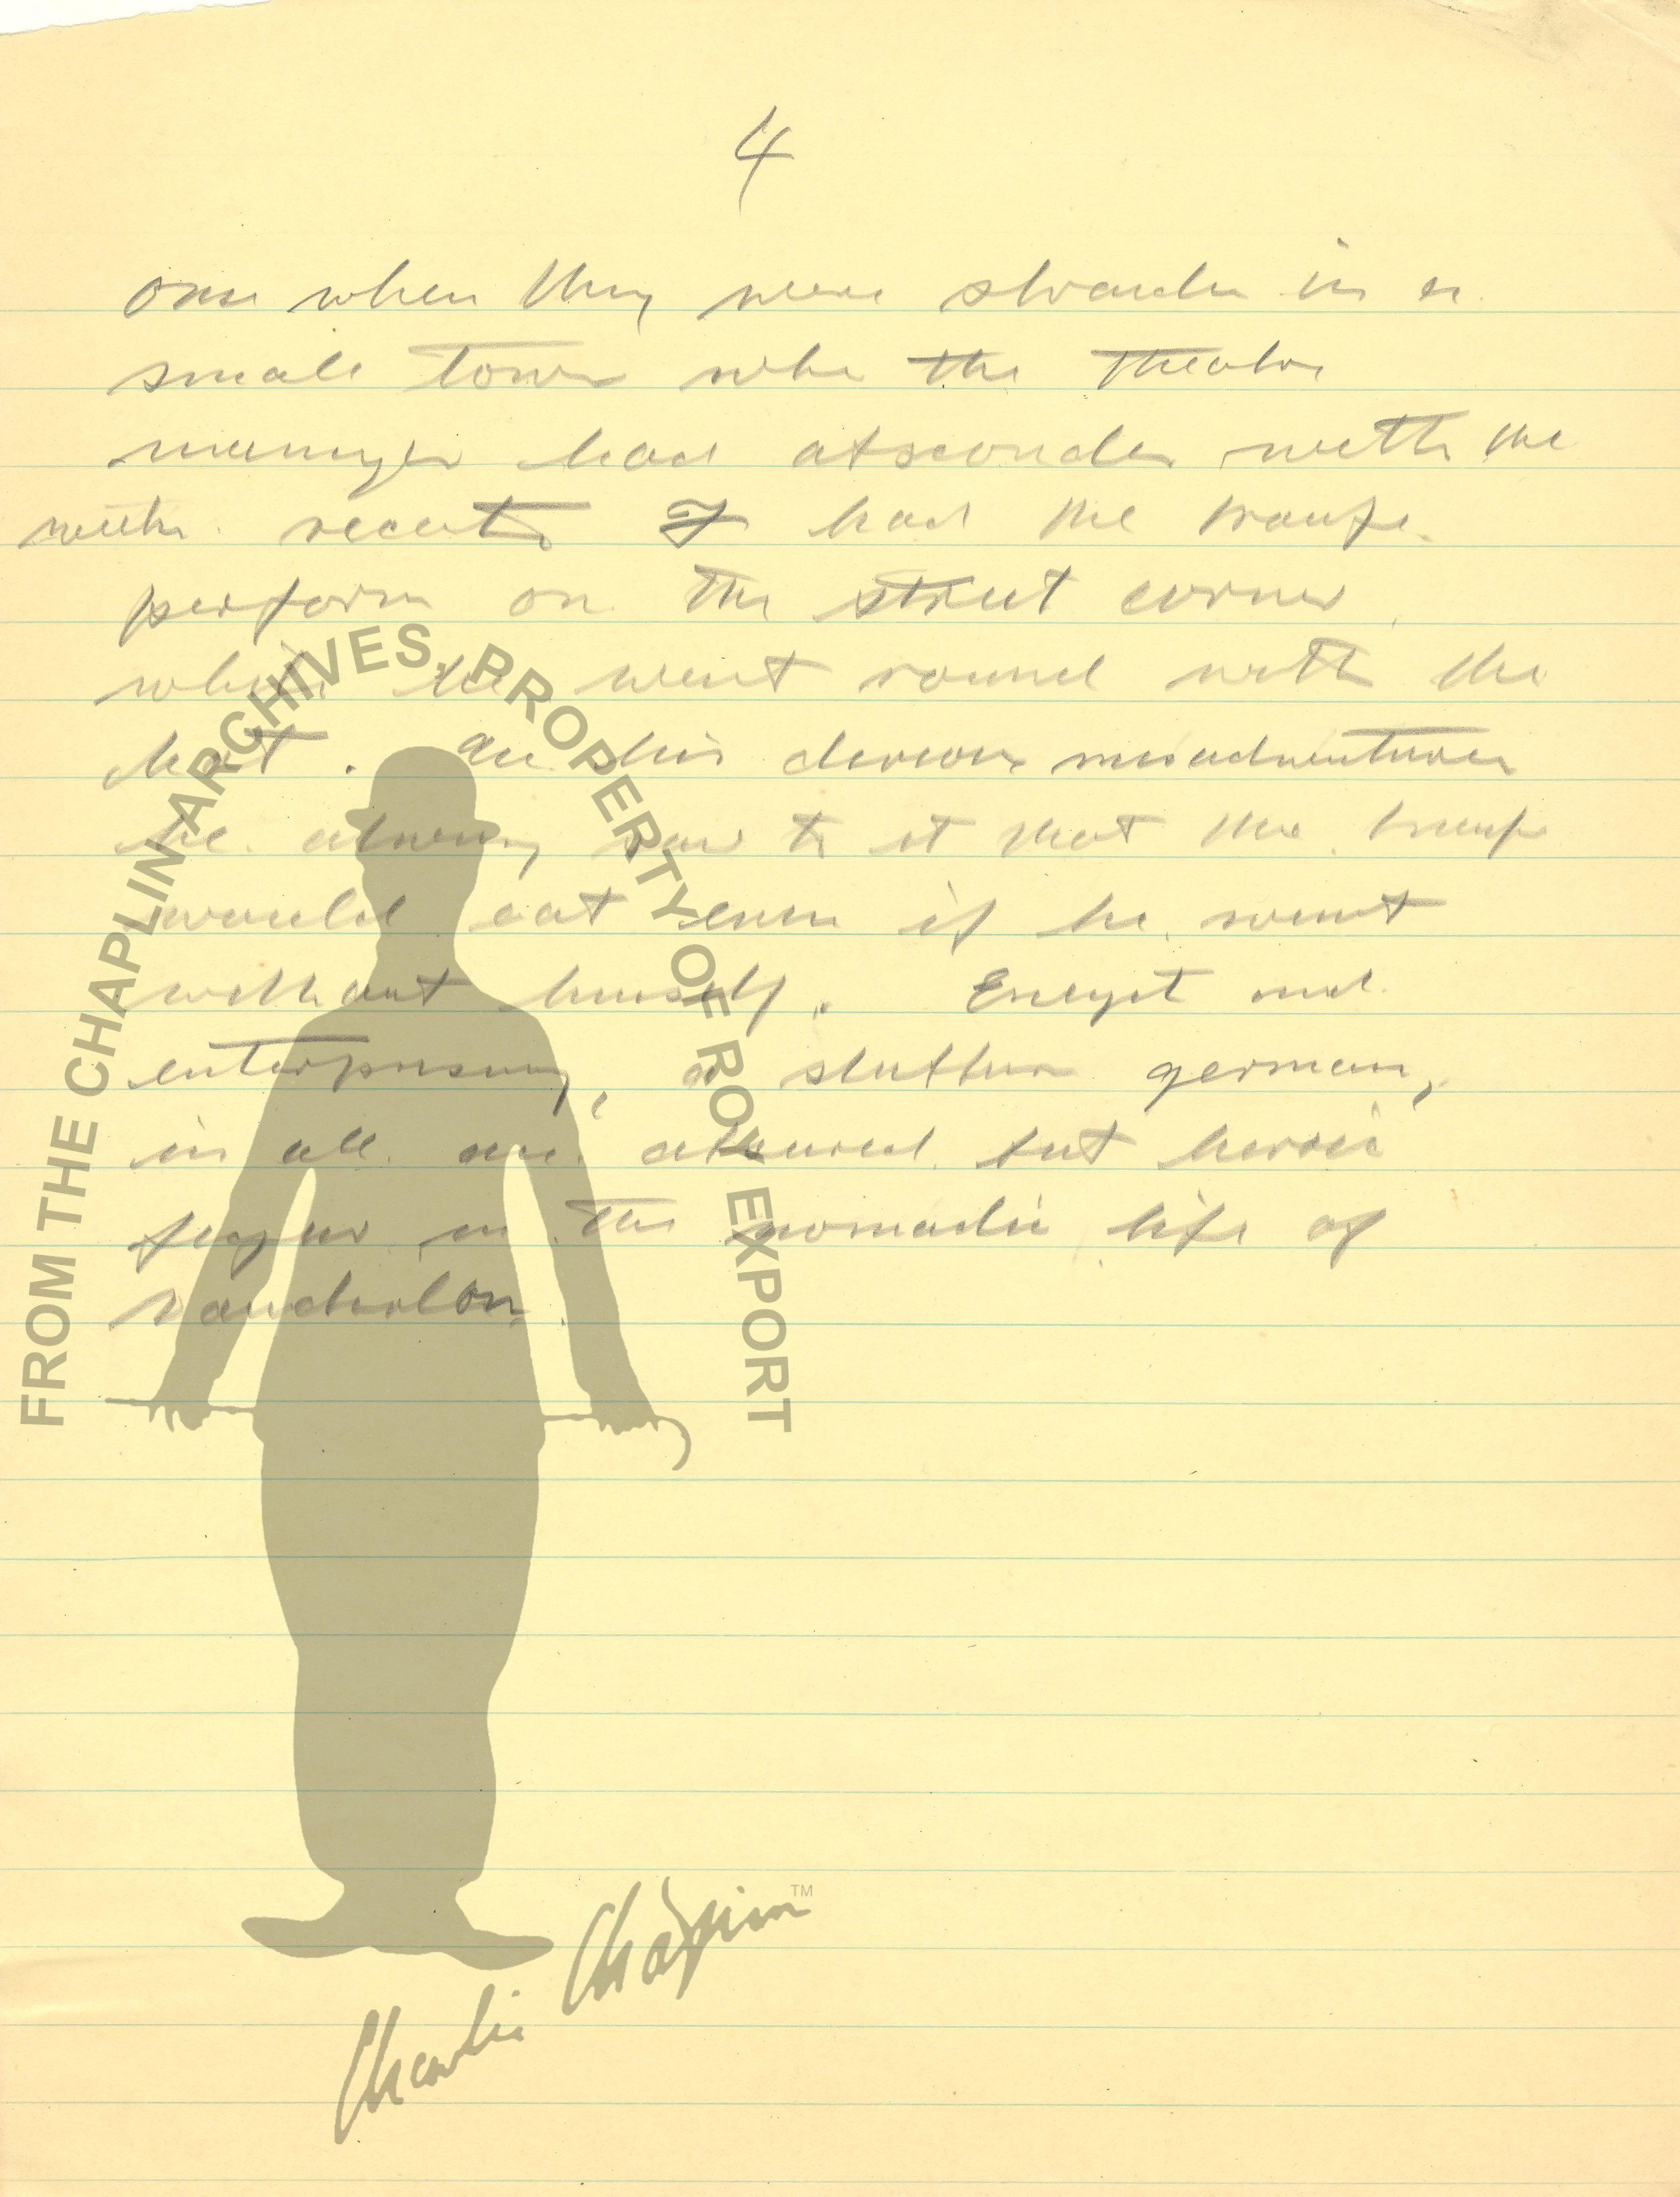 4
once when they were strande in a
small town whe the theatre
manager had absconded with the
weeks receits I had the troupe
perform on the street corner
while he went round with the
hat. In his devious misadventures
he always saw to it that the troupe
would eat even if he went
without himself. and
enterprising, a german,
in all an absurd but heroic
figure in the nomadic life of
vaudevillon.
FROM THE CHAPLIN ARCHIVES. PROPERTY OF ROY EXPORT
Charlie Chaplin TM